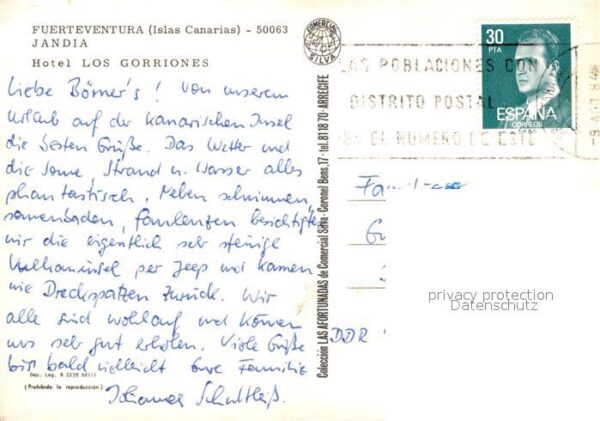 FUERTEVENTURA (Islas Canarias) - 50063
JANDIA
Hotel LOS GORRIONES
Liebe Börner's! Von unserem
Urlaub auf der kanarischen Insel
die besten Grüße. Das Wetter und
die Sonne, Strand u. Wasser alles
phantastisch. Neben schwimmen,
sonnenbaden, faulenzen besichtigten
wir die eigentlich sehr steinige
Vulkaninsel per Jeep und kamen
wie Dreckspatzen zurück. Wir
alle sind wohlauf und können
uns sehr gut erholen. Viele Grüße
bis bald vielleicht Eure Familie
Johannes Schultheiß.
Dep. Leg. B 2235 XXIII
(Prohibida la reproducción)
COMERCIAL SILVA
Colección LAS AFORTUNADAS de Comercial Silva - Coronel Bens, 17 - tel. 811870 - ARRECIFE
LAS POBLACIONES CON
DISTRITO POSTAL
EL NUMERO DE ESTE
30
PTA
ESPAÑA
CORREOS
Familie
DDR
privacy protection
Datenschutz